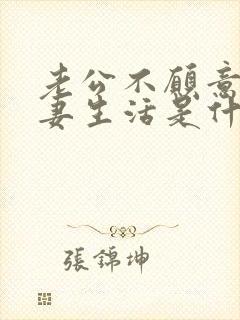 老公不愿意
妻生活是什
張錦坤